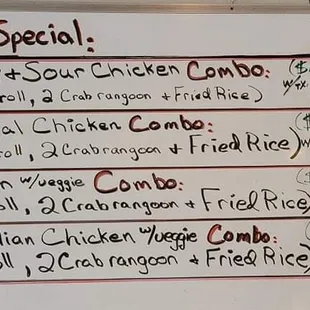 Special:
+ Sour Chicken Combo: ($
roll, 2 Crab rangoon + Fried Rice) w/tx
al Chicken Combo: (
oll, 2 Crab rangoon + Fried Rice) w
n w/veggie Combo: (
l, 2 Crab rangoon + Fried Rice)
lian Chicken w/veggie Combo: (
ll, 2 Crab rangoon + Fried Rice)